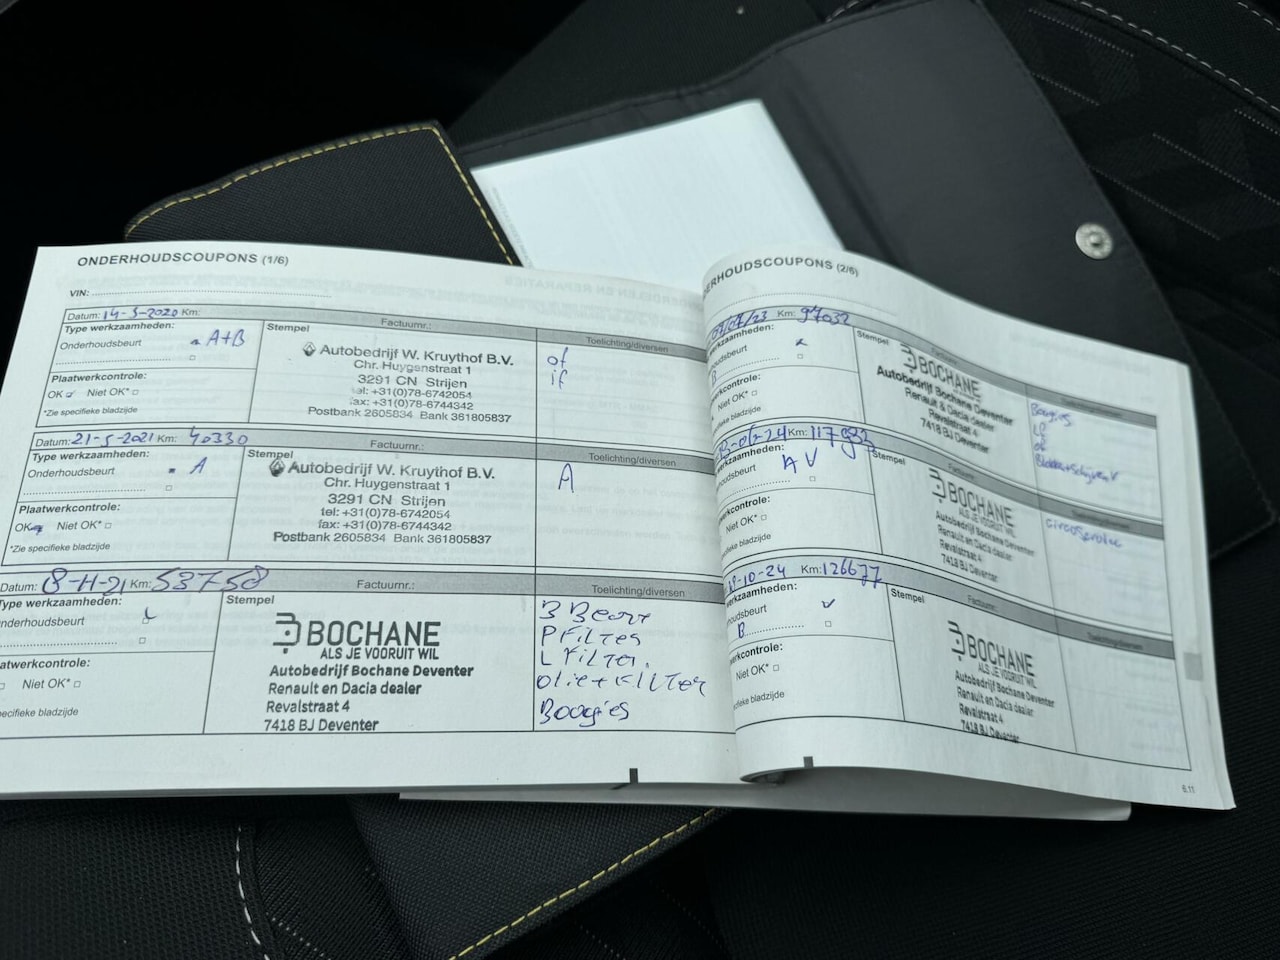 ONDERHOUDSCOUPONS (1/6)
VIN:
Datum: 14-5-2020 Km:
Factuurnr.:
Type werkzaamheden:
Onderhoudsbeurt A+B
Stempel
Toelichting/diversen
Autobedrijf W. Kruythof B.V.
Chr. Huygenstraat 1
3291 CN Strijen
tel: +31(0)78-6742054
fax: +31(0)78-6744342
Postbank 2605834 Bank 361805837
of
if
Plaatwerkcontrole:
OK Niet OK*
*Zie specifieke bladzijde
Datum: 21-5-2021 Km: 40330
Factuurnr.:
Type werkzaamheden:
Onderhoudsbeurt A
Stempel
Toelichting/diversen
Autobedrijf W. Kruythof B.V.
Chr. Huygenstraat 1
3291 CN Strijen
tel: +31(0)78-6742054
fax: +31(0)78-6744342
Postbank 2605834 Bank 361805837
A
Plaatwerkcontrole:
OK Niet OK*
*Zie specifieke bladzijde
Datum: 8-11-21 Km: 53758
Factuurnr.:
Type werkzaamheden:
nderhoudsbeurt
Stempel
Toelichting/diversen
BOCHANE
ALS JE VOORUIT WIL
Autobedrijf Bochane Deventer
Renault en Dacia dealer
Revalstraat 4
7418 BJ Deventer
B Beurt
P Filter
L Filter.
Olie+Filter
Boogies
laatwerkcontrole:
Niet OK*
pecifieke bladzijde
DERHOUDSCOUPONS (2/6)
07/07/23 Km: 97032
Factuurnr.:
werkzaamheden:
houdsbeurt
B
Stempel
Toelichting/diversen
BOCHANE
Autobedrijf Bochane Deventer
Renault & Dacia dealer
Revalstraat 4
7418 BJ Deventer
Boogies
LF
OF
werkcontrole:
Niet OK*
specifieke bladzijde
Km: 117
Factuurnr.:
werkzaamheden:
oudsbeurt A V
Stempel
BOCHANE
ALS JE VOORUIT WIL
Autobedrijf Bochane Deventer
Renault en Dacia dealer
Revalstraat 4
7418 BJ Deventer
werkcontrole:
Niet OK*
specifieke bladzijde
-10-24 Km: 126677
Factuurnr.:
werkzaamheden:
houdsbeurt
B
Stempel
Toelichting/diversen
BOCHANE
ALS JE VOORUIT WIL
Autobedrijf Bochane Deventer
Renault en Dacia dealer
Revalstraat 4
7418 BJ Deventer
werkcontrole:
Niet OK*
specifieke bladzijde
6.11